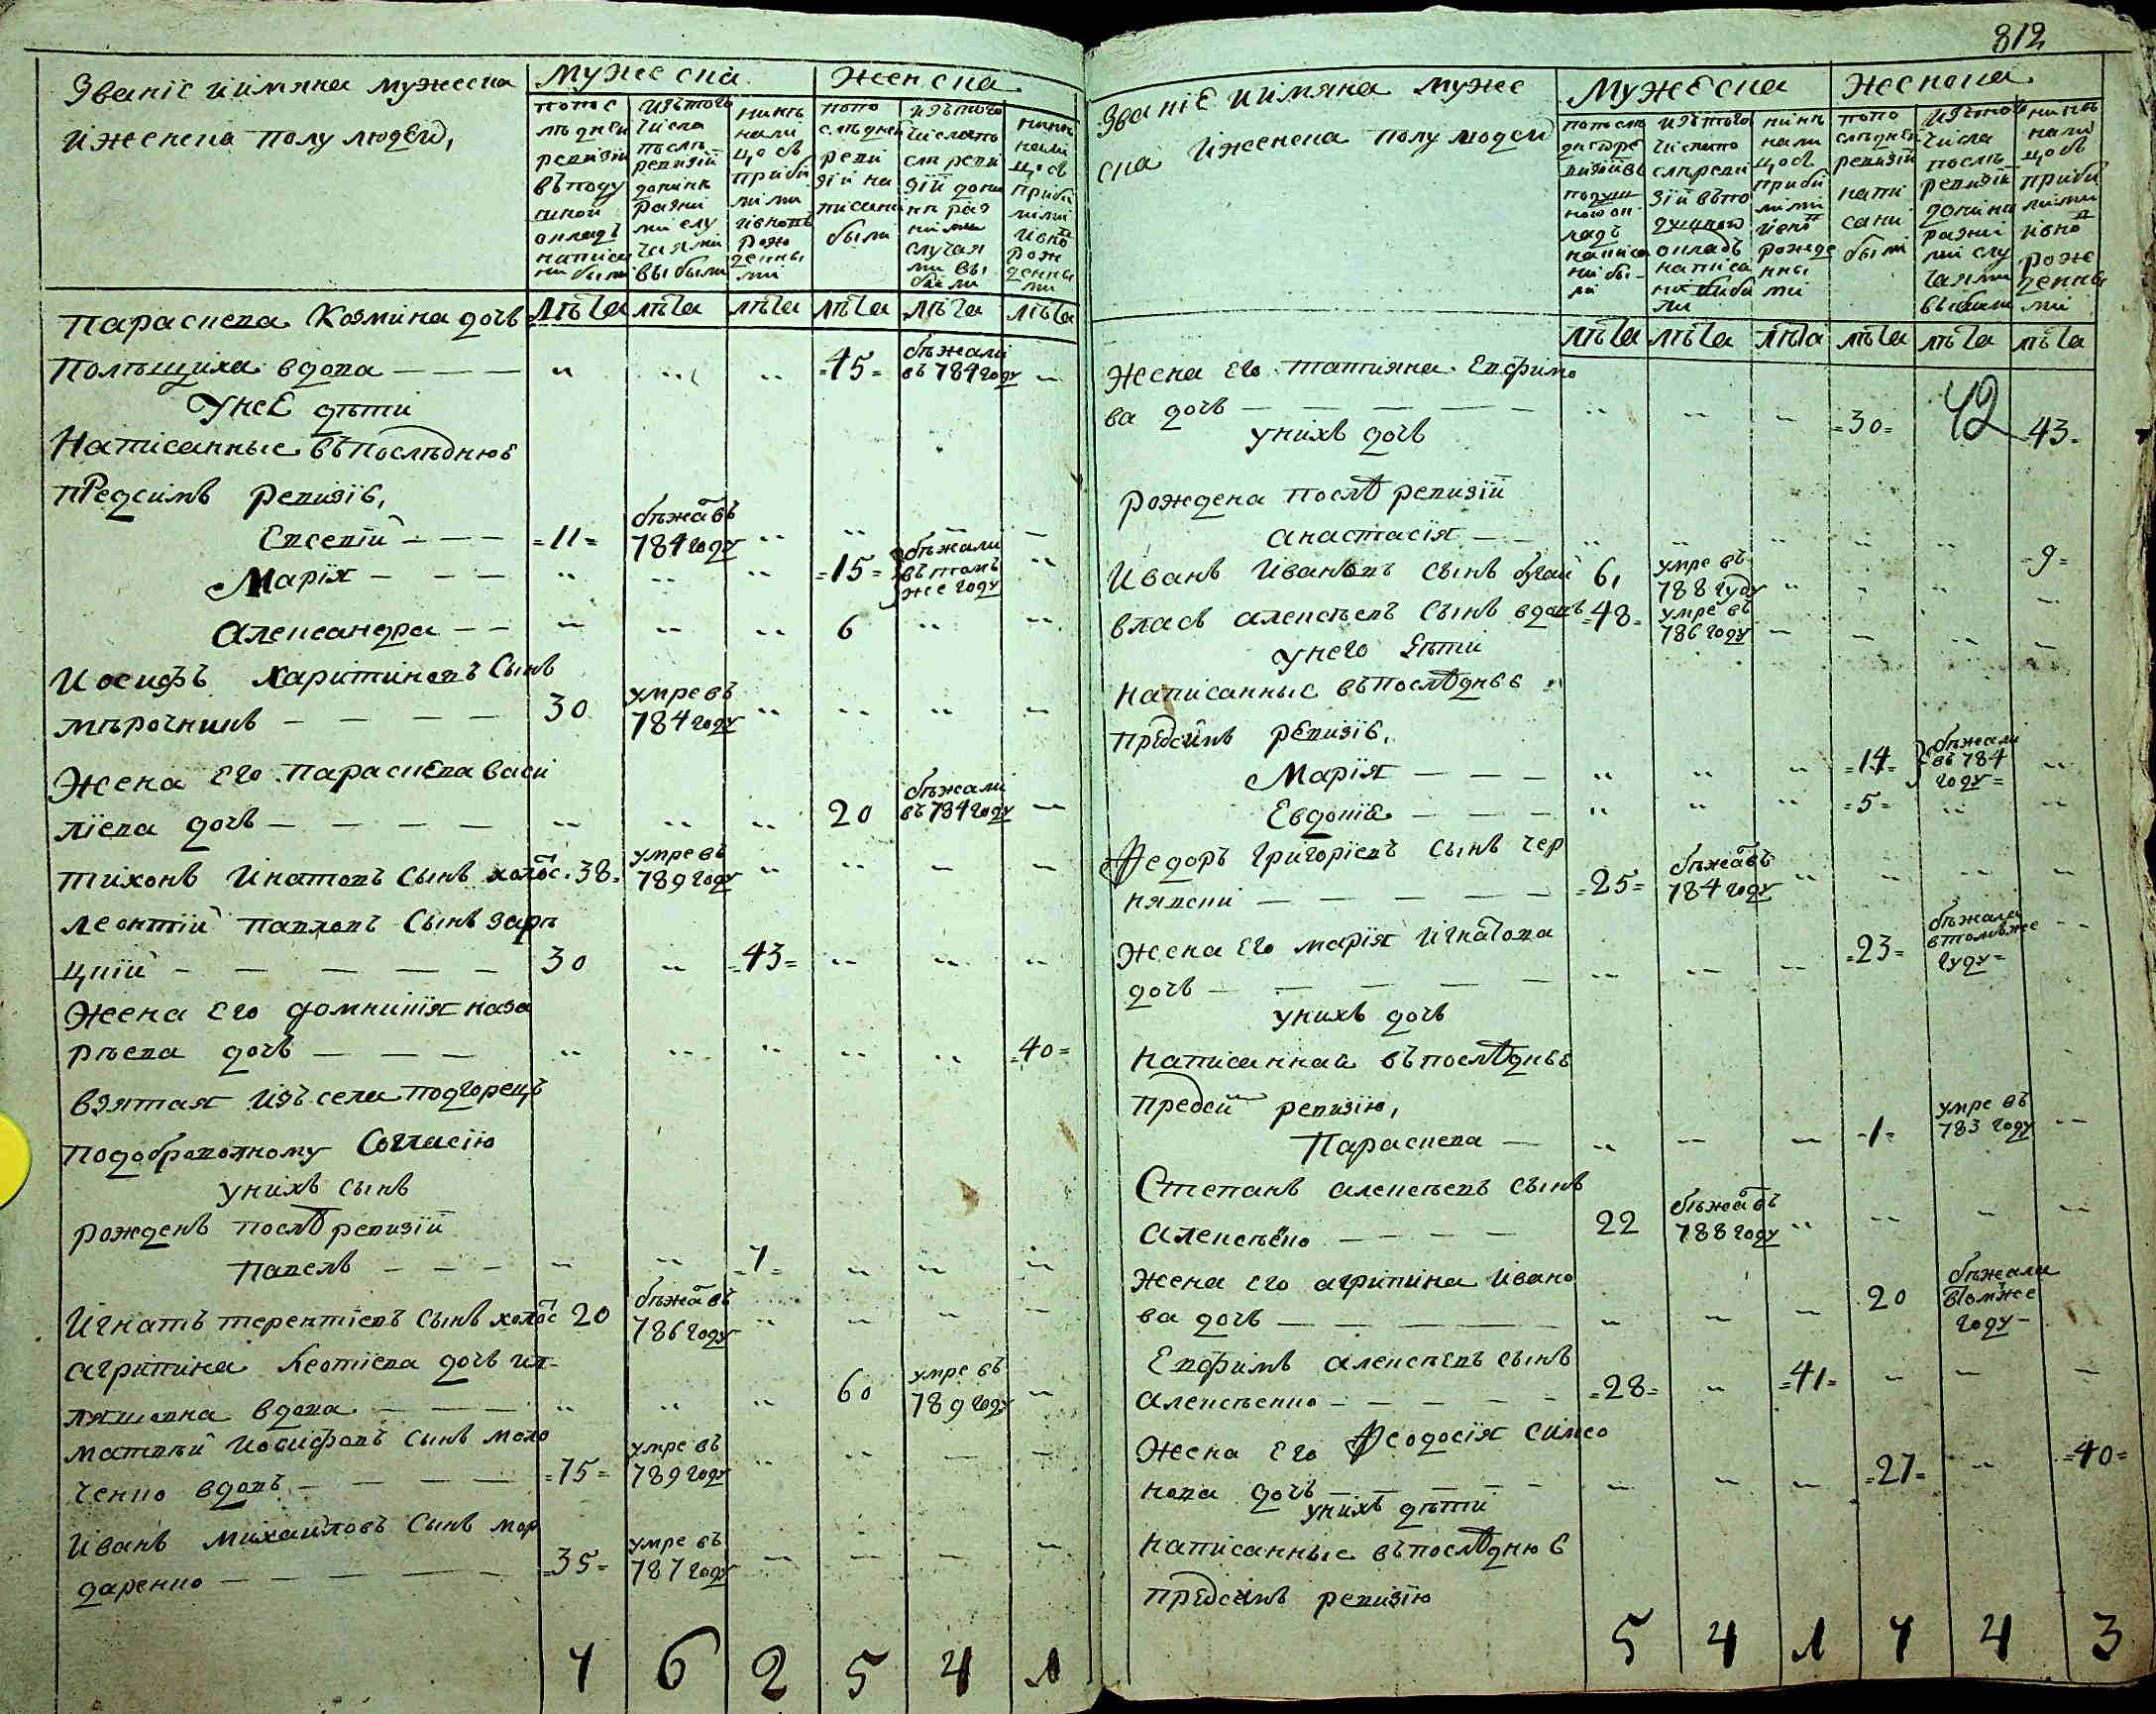 812
Званіе иимяна мужеска
иженска полу людей,
Мужеска
Женска
попос
лѣдней
ревизіи
въподу
шной
окладъ
написа
ни были
изътого
числа
послѣ
ревизіи
разни
ми слу
чаями
выбыли
нинѣ
нали
цо съ
прибі
лими
рож
денны
ми
попо
слѣдней
реви
зіи на
писани
были
изътого
числапо
слѣ реви
зіи
разними
случая
ми вы
были
нинѣ
нали
цо съ
прибі
лими
рож
денны
ми
лѣта лѣта лѣта лѣта лѣта лѣта
Параскева Козмина дочь
Полѣщиха вдова — — — 45 бѣжали
въ 784 году
Унее дѣти
Написанные въпослѣднюю
Предсимъ ревизію,
Евсевій — — — 11 бѣжа въ
784 году
Марія — — — 15 бѣжали
въ томъ
же году
Александра — — 6
Иосифъ Харитиновъ Сынъ
мѣрочникъ — — — — 30 умре въ
784 году
Жена его Параскева васи
ліева дочь — — — — 20 бѣжали
въ 784 году
Тихонъ Игнатовъ Сынъ холос 38 умре въ
789 году
Леонтій Павловъ Сынъ зарѣ
цкій — — — — — 30 43
Жена его домникія наза
рѣева дочь — — — 40
Взятая изъ села подгорецъ
Подобровольному Согласію
унихъ сынъ
рожденъ послѣ ревизіи
Павелъ — — — 7
Игнатъ терентіевъ сынъ холос 20 бѣжа въ
786 году
агрипина леонтіева дочь ил
ляшевна вдова — — — 60 умре въ
789 году
матвѣй Иосифовъ Сынъ моло
ченко вдовъ — — — — 75 умре въ
789 году
Иванъ михаиловъ Сынъ мор
даренко — — — — — 35 умре въ
787 году
7 6 2 5 4 1
Званіе иимяна муже
ска иженска полу людей
Мужеска
Женска
попослѣ
дней ре
визіи въ
подуш
ной ок
ладъ
написа
ни бы
ли
изътого
числапо
слѣ реви
зіи въ по
душной
окладъ
написа
ли
нинѣ
нали
цо съ
прибі
лими
рожде
нны
ми
попо
слѣдней
ревизіи
напи
сани
были
изътого
числа
послѣ
ревизіи
разни
ми слу
чаями
выбыли
нинѣ
нали
цо съ
прибі
лими
рож
денны
ми
лѣта лѣта лѣта лѣта лѣта лѣта
Жена Его татияна Евфимо
ва дочь — — — — — 30 42 43
унихъ дочь
рождена послѣ ревизіи
анастасія — — 9
Иванъ Ивановъ сынъ бугай 61 умре въ
788 году
власъ алексѣевъ сынъ вдовъ 48 умре въ
786 году
унего дѣти
Написанные въпослѣднею
предсимъ ревизію,
Марія — — — 14 бѣжали
въ 784
году
Евдокія — — — 5
Федоръ григоріевъ сынъ чер
нявски — — — — — 25 бѣжа въ
784 году
жена его марія игнатова
дочь — — — — — 23 бѣжали
втомъже
году
унихъ дочь
написанная въпослѣднею
предсим ревизію,
Параскева — 1 умре въ
783 году
Степанъ алексѣевъ сынъ
алексѣенко — — — — 22 бѣжа въ
788 году
жена его агрипина ивано
ва дочь — — — — — 20 бѣжали
втомже
году
Евфимъ алексѣевъ сынъ
алексѣенко — — — — — 28 41
Жена его Феодосія симео
нова дочь — — — — — 27 40
унихъ дѣти
написанные въпослѣднюю
предсимъ ревизію
5 4 1 7 4 3